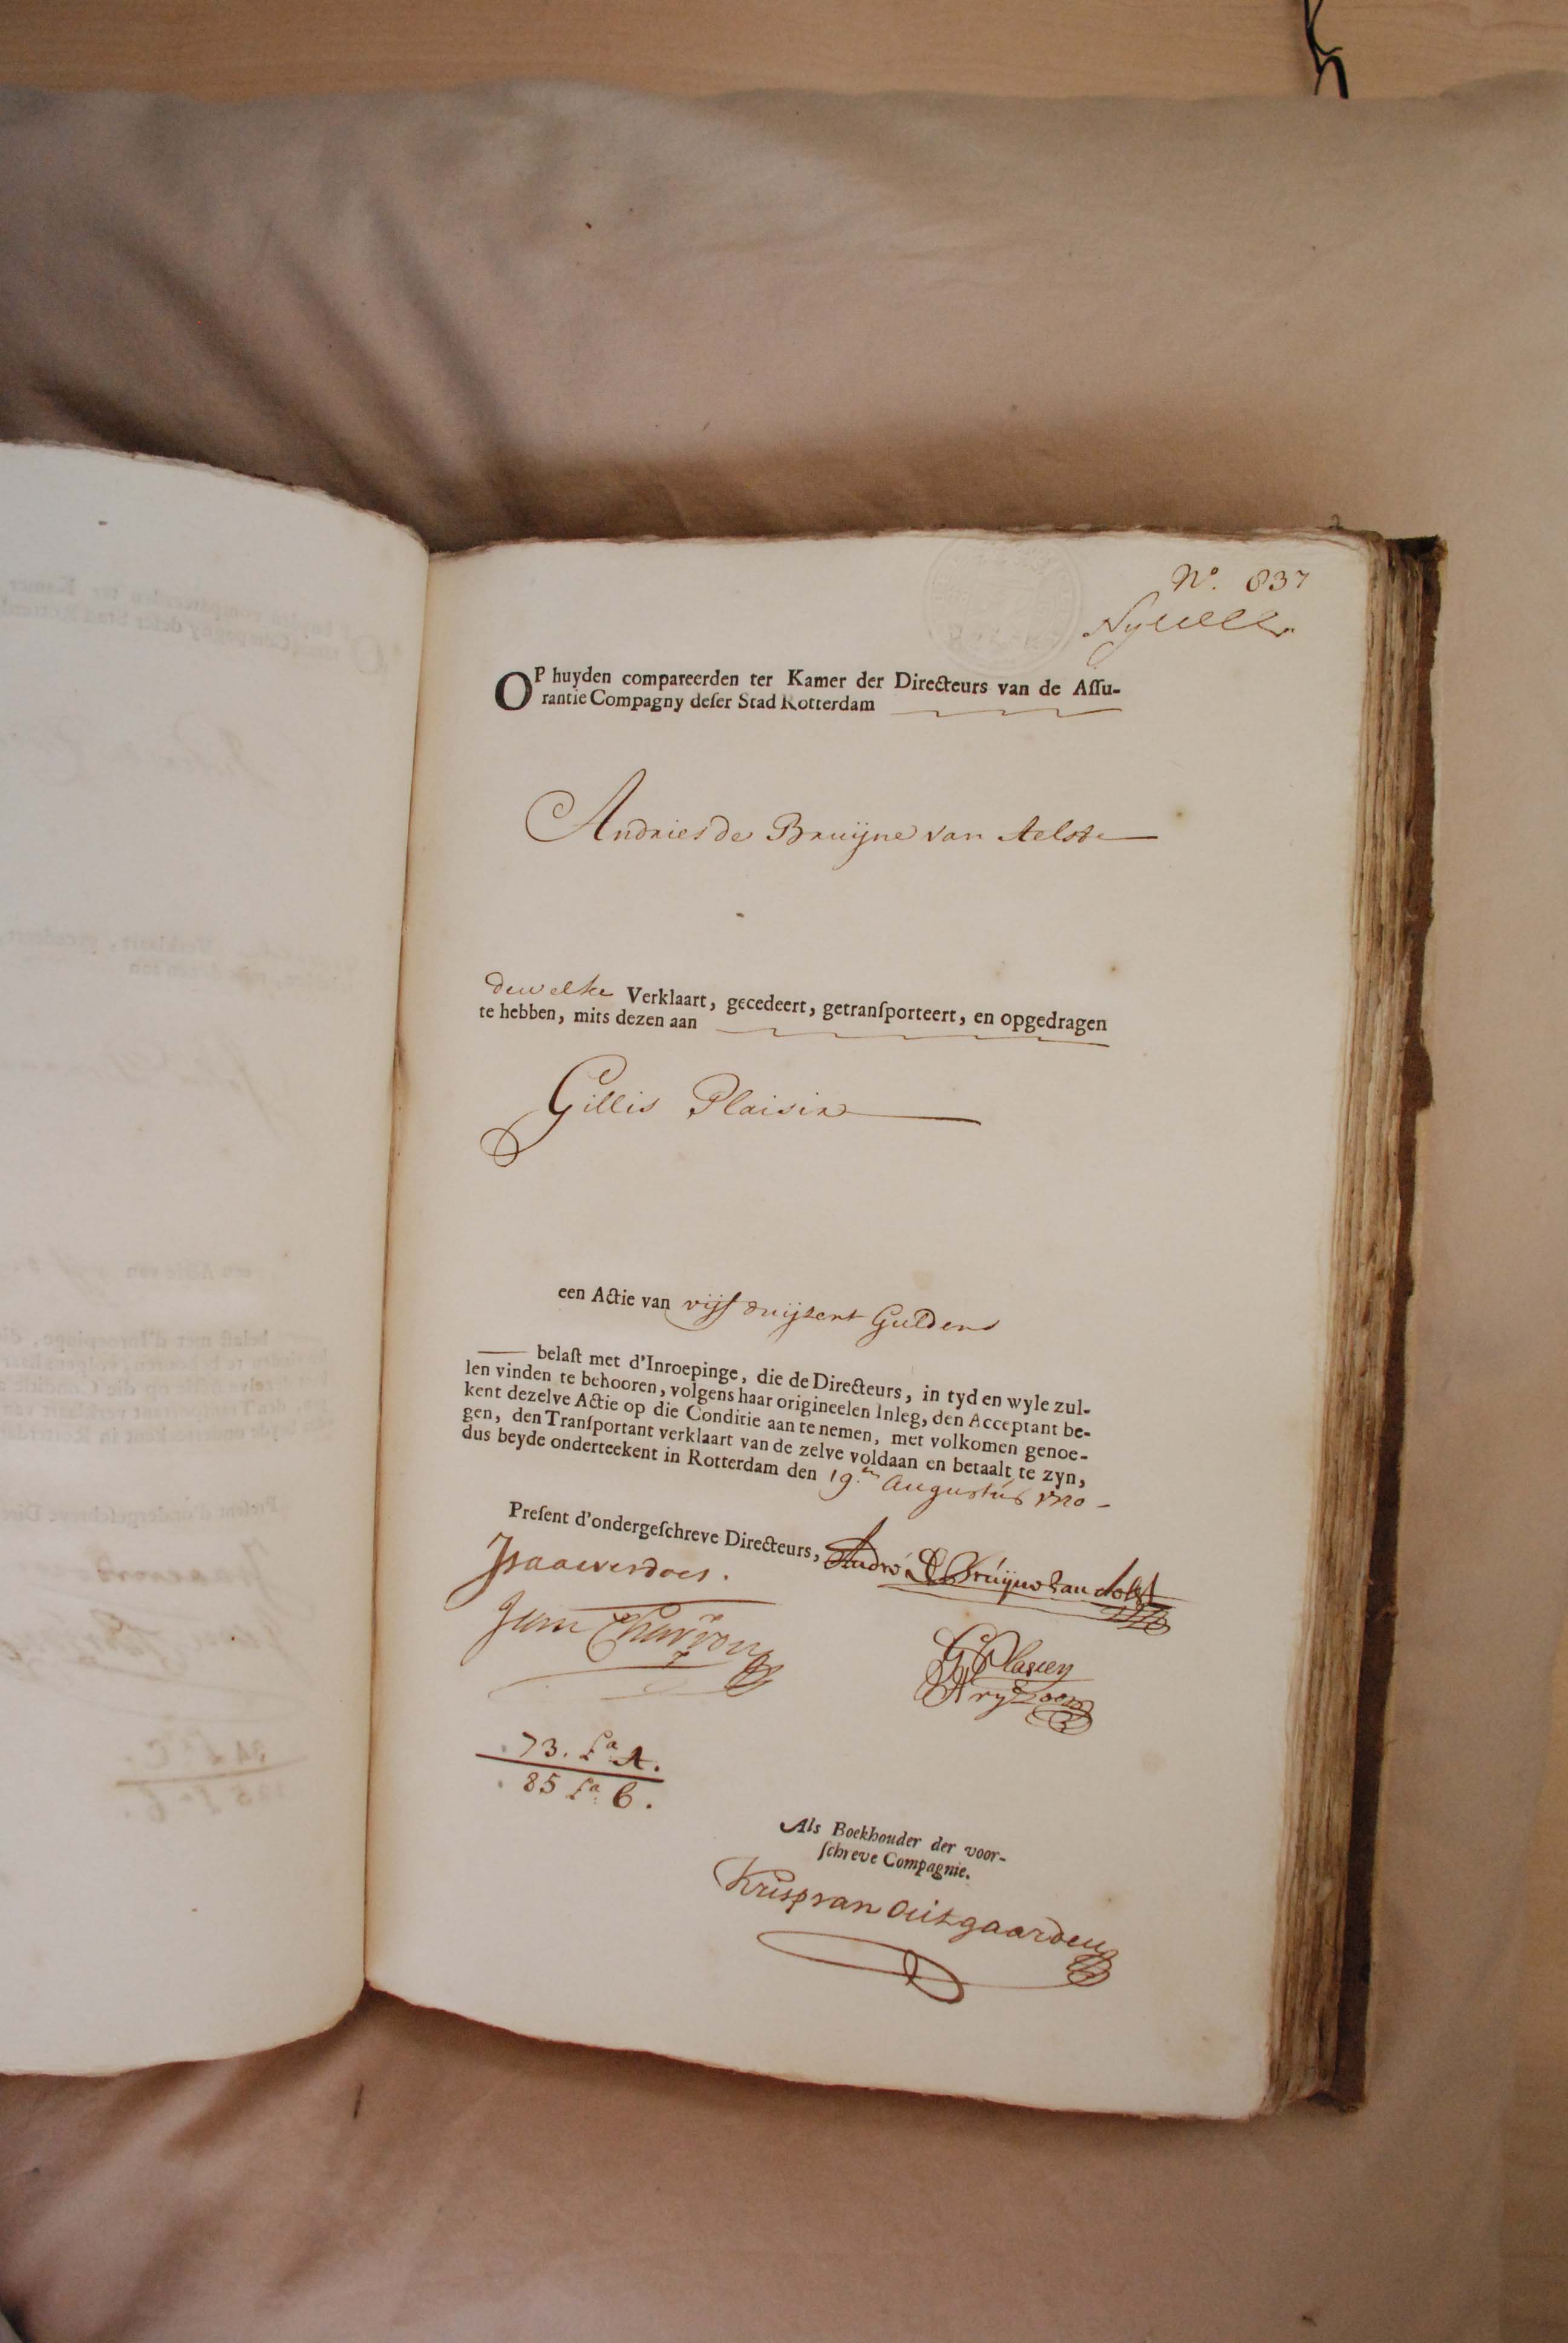 No. 837
OP huyden compareerden ter Kamer der Directeurs van de Aſſu-
rantie Compagny deſer Stad Rotterdam
Andries de Bruijne van Aelst
dewelke Verklaart, gecedeert, getranſporteert, en opgedragen
te hebben, mits dezen aan
Gillis Plaisin
een Actie van vijf duijsent Guldens
belaſt met d'Inroepinge, die de Directeurs, in tyd en wyle zul-
len vinden te behooren, volgens haar origineelen Inleg, den Acceptant be-
kent dezelve Actie op die Conditie aan te nemen, met volkomen genoe-
gen, den Tranſportant verklaart van de zelve voldaan en betaalt te zyn,
dus beyde onderteekent in Rotterdam den 19en Augustus 1720
Preſent d'ondergeſchreve Directeurs, André De Bruijne van Aelst
Isaac verdoes.
G Plasien
Aryszoen
73. La A.
85 La C.
Als Boekhouder der voor-
ſchreve Compagnie.
Krisp van Outgaarden